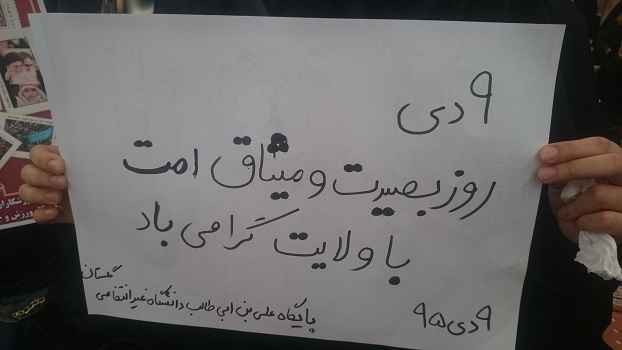 ۹ دی
روز بصیرت و میثاق امت
با ولایت گرامی باد
گلستان
پایگاه علی بن ابی طالب دانشگاه غیرانتفاعی
۹ دی ۹۵